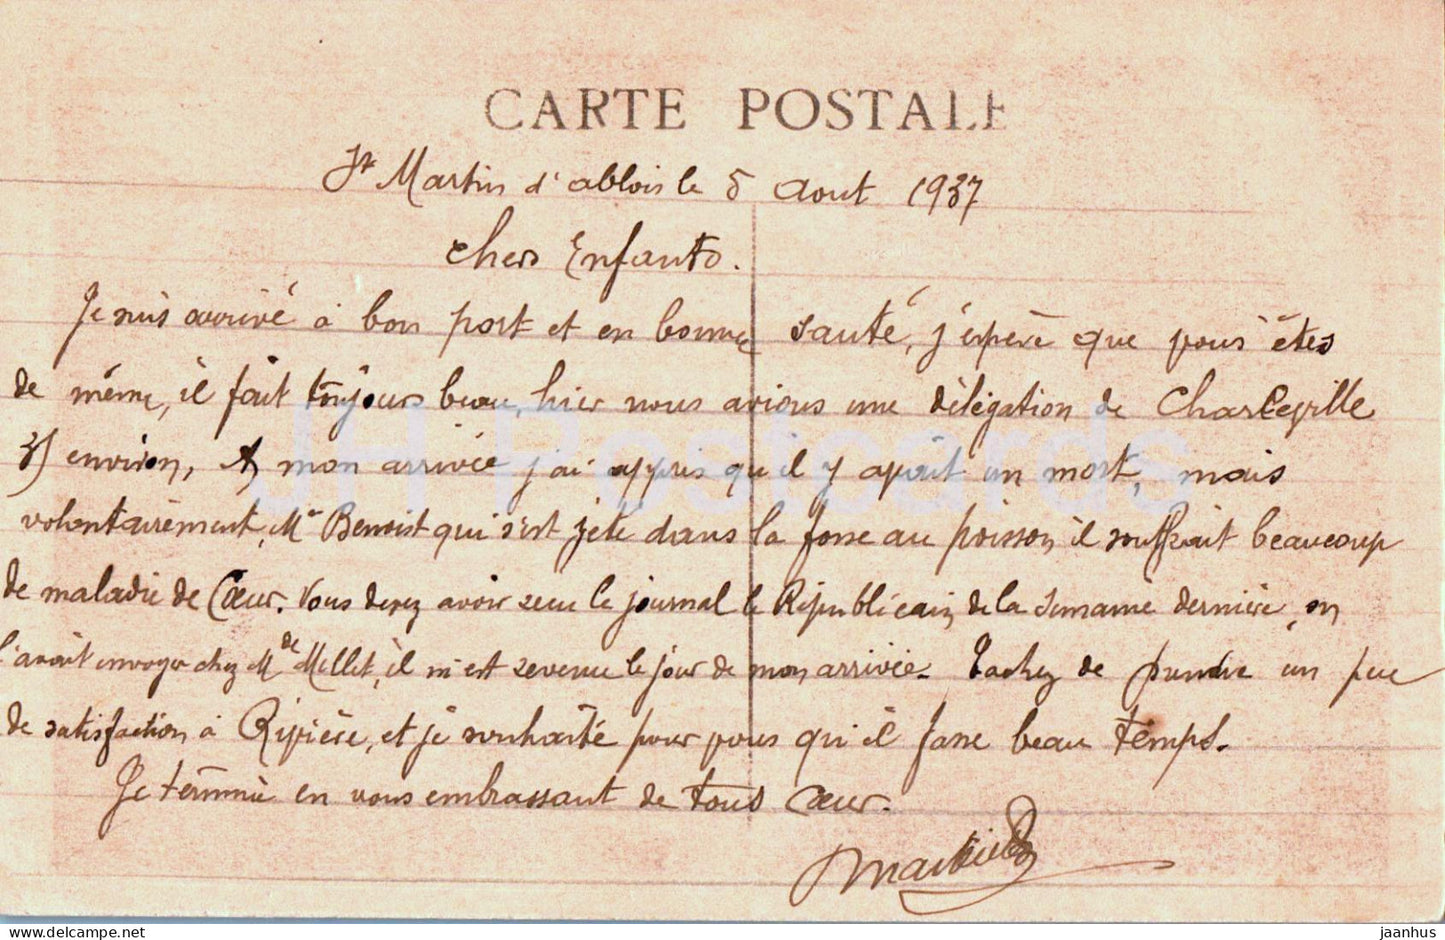 CARTE POSTALE
St Martin d'ablois le 5 Aout 1937
Chers Enfants.
Je suis arrivé à bon port et en bonne santé, j'espère que vous êtes
de même, il fait toujours beau, hier nous avions une délégation de Charleville
35 environ, A mon arrivée j'ai appris qu'il y avait un mort, mais
volontairement, Mr Benoist qui s'est jeté dans la fosse au poisson il souffrait beaucoup
de maladie de Cœur. Vous devez avoir recu le journal le Républicain de la semaine dernière, on
l'avait envoyer chez Mde Millet, il m'est revenu le jour de mon arrivée. Tachez de prendre un peu
de satisfaction à Rivière, et je souhaite pour vous qu'il fasse beau temps.
Je termine en vous embrassant de tous cœur.
JH Postcards
jaanhus
www.delcampe.net